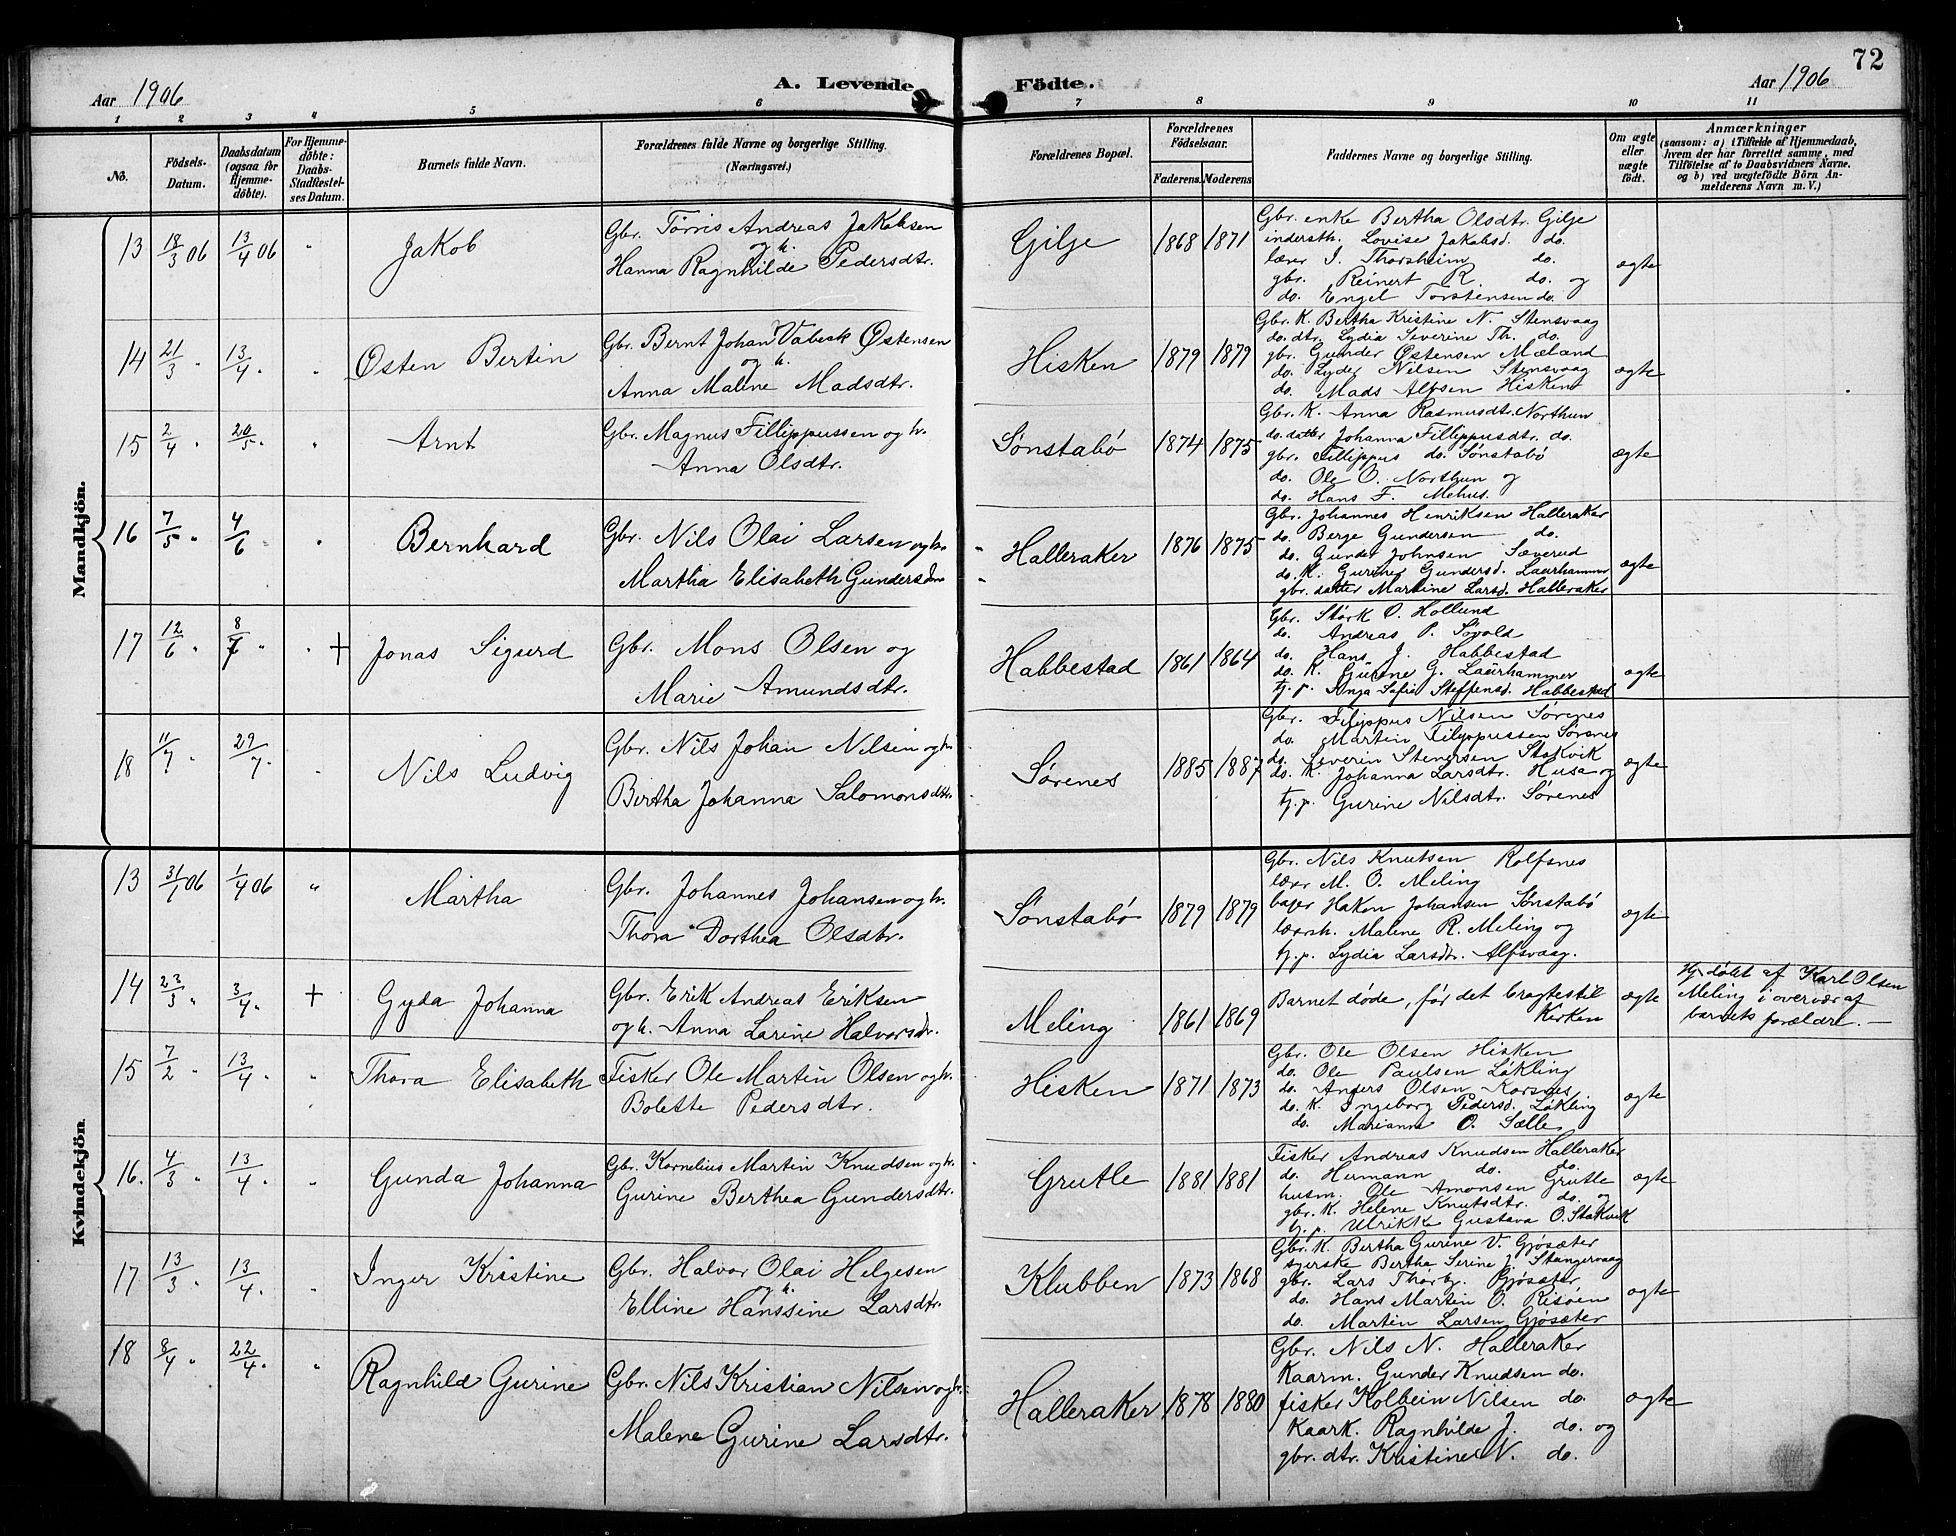 72
Aar 1906
A. Levende Födte.
Aar 1906
1 2 3 4 5 6 7 8 9 10 11
No.
Födsels-Datum.
Daabsdatum (ogsaa for Hjemme-döbte).
For Hjemme-döbte: Daabs-Stadfæstel-ses Datum.
Barnets fulde Navn.
Forældrenes fulde Navne og borgerlige Stilling. (Næringsvei.)
Forældrenes Bopæl.
Forældrenes Födselsaar.
Faderens. Moderens
Faddernes Navne og borgerlige Stilling.
Om ægte eller uægte födt.
Anmærkninger
(saasom: a) i Tilfælde af Hjemmedaab, hvem der har forrettet samme, med Tilföielse af to Daabsvidners Navne. og b) ved uægtefödte Börn An-melderens Navn m. V.)
Mandkjön.
13 18/3 06 13/4 06 " Jakob
Gbr. Tørris Andreas Jakobsen
og h.
Hanna Ragnhilde Pedersdtr.
Gilje 1868 1871
Gbr. enke Bertha Olsdtr. Gilje
indersth. Lovise Jakobsd. do.
lærer I. Thorsheim do.
gbr. Reinert R. do. og
do. Engel Torstensen do.
ægte
14 21/3 " 13/4 " " Østen Bertin
Gbr. Bernt Johan Vabeck Østensen
og h.
Anna Maline Madsdtr.
Hisken 1879 1879
Gbr. K. Bertha Kristine N. Stensvaag
do. dtr. Lydia Severine Th. do.
gbr. Gunder Østensen Mæland
do. Lyder Nilsen Stensvaag
do. Mads Alfsen Hisken
ægte
15 2/4 " 20/5 " " Arnt
Gbr. Magnus Fillippussen og h.
Anna Olsdtr.
Sønstabø 1874 1875
Gbr. K. Anna Rasmusdtr. Northun
do. datter Johanna Fillippusdtr. do.
gbr. Fillippus do. Sønstabø
do. Ole O. Northun og
do. Hans F. Mehus.
ægte
16 7/5 " 4/6 " Bernhard
Gbr. Nils Olai Larsen og h.
Martha Elisabeth Gundersdtr
Halleraker 1876 1875
Gbr. Johannes Henriksen Halleraker
do. Berge Gundersen do.
do. Gunder Johnsen Sæverud
do. K. Gurine Gundersd. Laurhammer
gbr. datter Martine Larsd. Halleraker
ægte
17 12/6 " 8/7 " " + Jonas Sigurd
Gbr. Mons Olsen og
Marie Amundsdtr.
Habbestad 1861 1864
Gbr. Størk O. Hollund
do. Andreas P. Søvold
do. Hans J. Habbestad
do. K. Gurine G. Laurhammer
tj. p. Anja Sofie Steffensd. Habbestad
ægte
18 11/7 " 29/7 " " Nils Ludvig
Gbr. Nils Johan Nilsen og h.
Bertha Johanna Salomonsdtr.
Sørenes 1885 1887
Gbr. Filippus Nilsen Sørenes
do. Martin Filippussen Sørenes
do. Severin Stenersen Stokvik
do. K. Johanna Larsdtr. Husa og
tj. p. Gurine Nilsdtr. Sørenes
ægte
Kvindekjön.
13 31/1 06 1/4 06 " Martha
Gbr. Johannes Johansen og h.
Thora Dorthea Olsdtr.
Sønstabø 1879 1879
Gbr. Nils Knutsen Rolfsnes
lærer M. O. Meling
bager Hakon Johansen Sønstabø
lærerh. Malene R. Meling og
tj. p. Lydia Larsdtr. Alfsvaag.
ægte
14 23/3 " 3/4 " + Gyda Johanna
Gbr. Erik Andreas Eriksen
og h. Anna Larine Halvorsdtr.
Meling 1861 1869
Barnet døde, før det bragtes til
Kirken
ægte
Hj. døbt af Karl Olsen
Meling i overvær af
barnets forældre. —
15 7/2 " 13/4 " " Thora Elisabeth
Fisker Ole Martin Olsen og h.
Bolette Pedersdtr.
Hisken 1871 1873
Gbr. Ole Olsen Hisken
do. Ole Paulsen Løkling
do. Anders Olsen Korsnes
do. K. Ingeborg Pedersd. Løkling
do. Marianne O. Sælle
ægte
16. 4/3 " 13/4 " " Gunda Johanna
Gbr. Kornelius Martin Knudsen og h.
Gurine Berthea Gundersdtr.
Grutle 1881 1881
Fisker Andreas Knudsen Halleraker
do. Hermann do. do.
husm. Ole Amonsen Grutle
gbr. K. Helene Knutsdtr. do. og
tj. p. Ulrikke Gustava O. Stokvik
ægte
17 13/3 " 13/4 " " Inger Kristine
Gbr. Halvor Olai Helgesen
og h.
Elline Hanssine Larsdtr.
Klubben 1873 1868
Gbr. K. Bertha Gurine V. Gjøsæter
syerske Bertha Serine J. Stangervaag
gbr. Lars Thorb. Gjøsæter
do. Hans Martin O. Risøen
do. Martin Larsen Gjøsæter
ægte
18 8/4 " 22/4 " " Ragnhild Gurine
Gbr. Nils Kristian Nilsen og h.
Malene Gurine Larsdtr.
Halleraker 1878 1880
Gbr. Nils N. Halleraker
Kaarm. Gunder Knudsen do.
fisker Kolbein Nilsen do.
Kaark. Ragnhilde J. do. og
gbr. dtr. Kristine N. do.
ægte